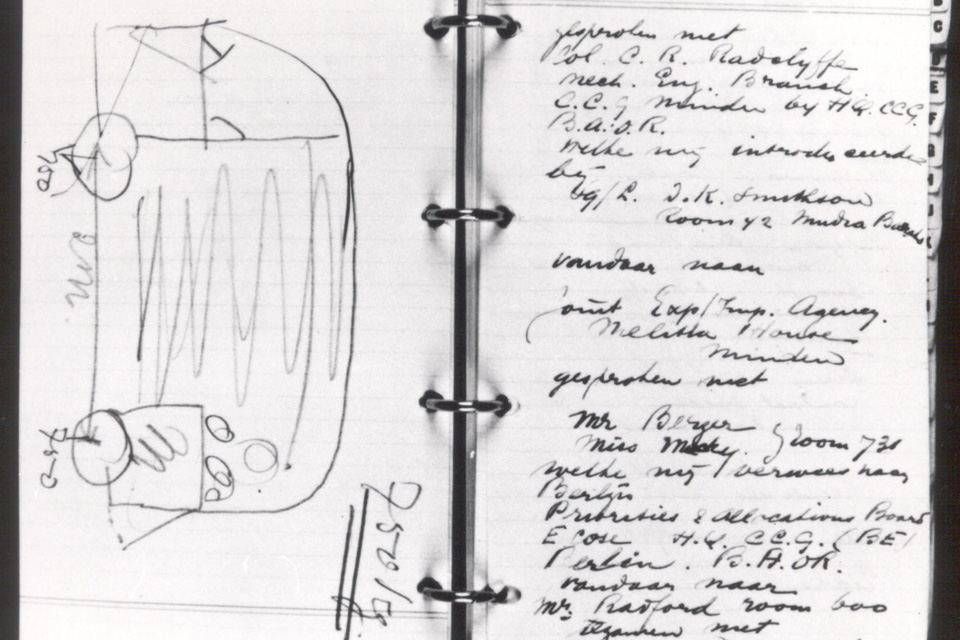 750
750
750 kg
gesproken met
Col. C. R. Radclyffe
Mech. Eng. Branch
C.C.G Minden by H.Q. CCG.
B.A.O.R.
welke mij introduceerde
bij
Sq/L. J.K. Smithson
Room 42 Mudra
vandaar naar
Joint Exp/Imp. Agency.
Melitta House
Minden
gesproken met
Mr Berger
Miss Macky. Room 731
welke mij verwees naar
Berlijn
Priorities & Allocations Board
H.Q. CCG. (BE)
Berlin. B.A.O.R.
vandaar naar
Mr Radford room 600
tezamen met
C
D
E
F